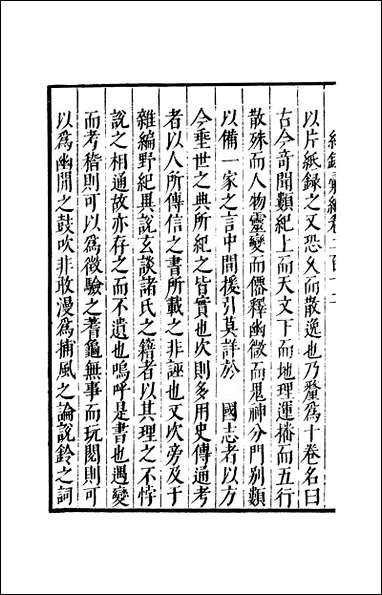 紀錄彙編卷二百十二
以片紙録之又恐久而散逸也乃釐爲十卷名曰
古今奇聞類紀上而天文下而地理運播而五行
散殊而人物靈變而僊釋幽微而鬼神分門別類
以備一家之言中間援引莫詳於　國志者以方
今垂世之典所紀之皆實也次則多用史傳通考
者以人所傳信之書所載之非誣也又次旁及于
雜編野紀異說玄談諸氏之籍者以其理之不悖
說之相通故亦存之而不遺也嗚呼是書也遇變
而考稽則可以爲徵驗之蓍龜無事而玩閱則可
以爲幽閒之鼓吹非敢漫爲捕風之論說鈴之詞